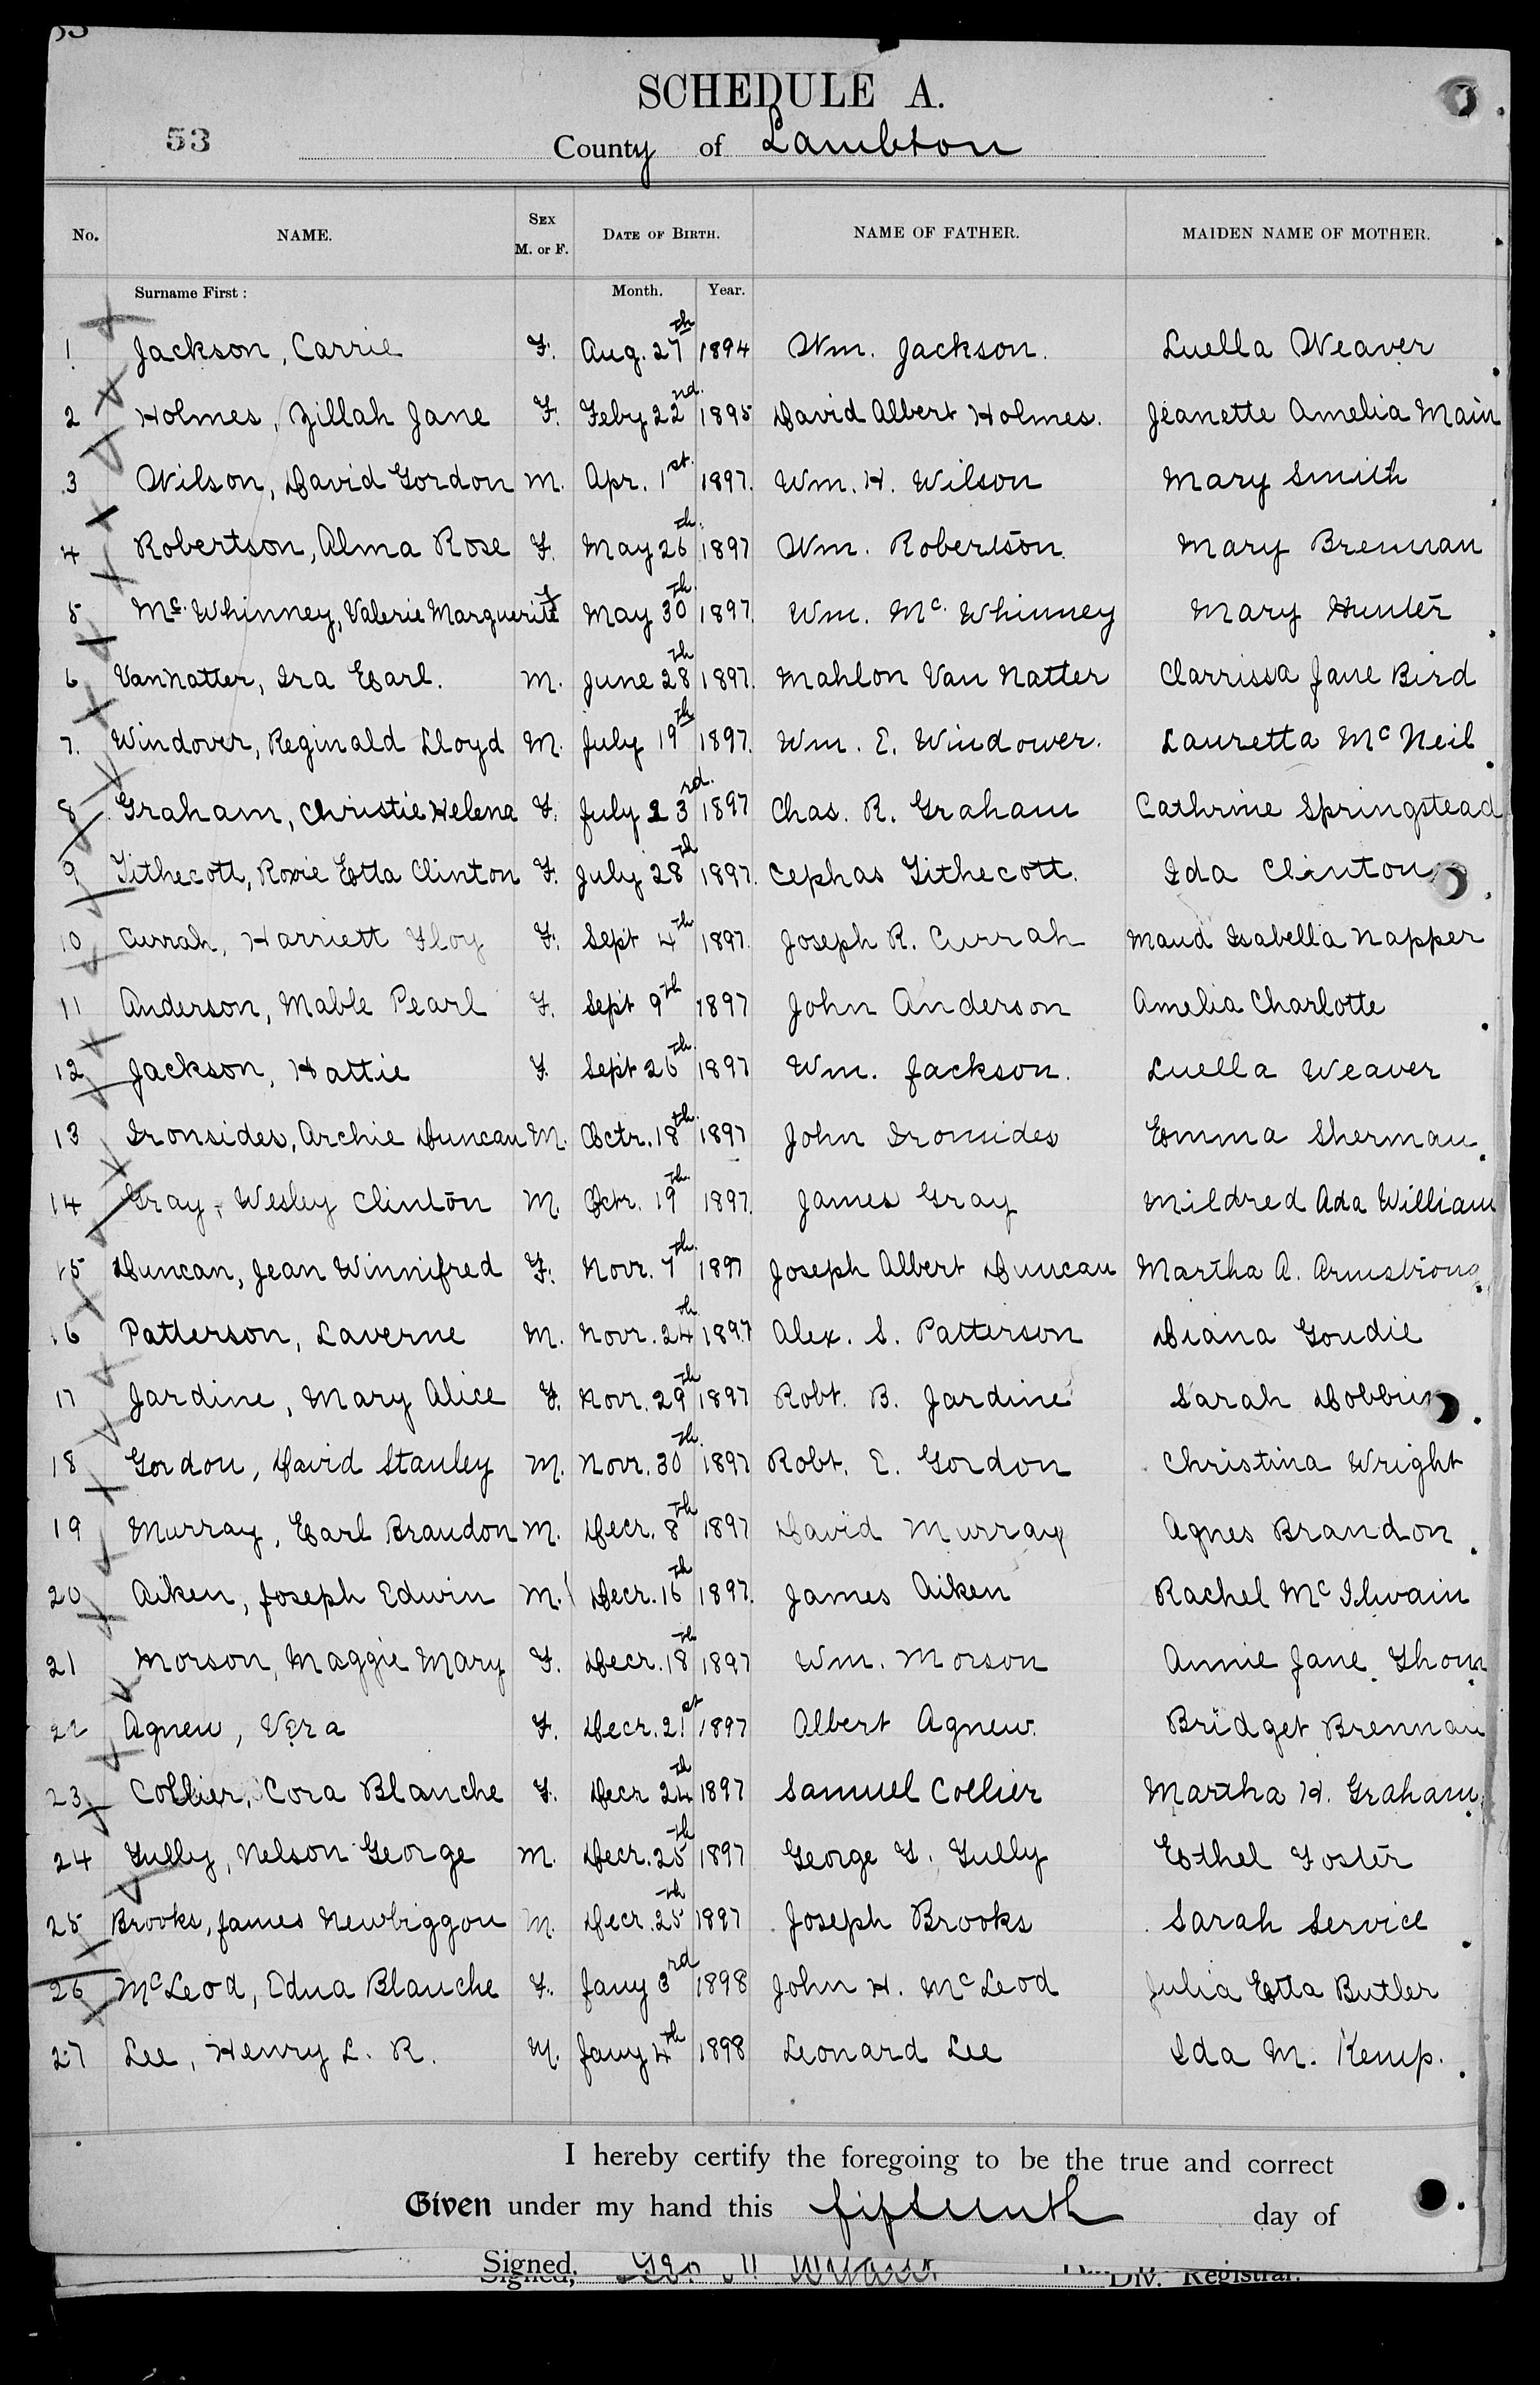 SCHEDULE A.
53
County of Lambton
No. NAME. SEX M. or F. DATE OF BIRTH. NAME OF FATHER. MAIDEN NAME OF MOTHER.
Surname First: Month. Year.
1 Jackson, Carrie F. Aug. 27th 1894 Wm. Jackson. Luella Weaver
2 Holmes, Zillah Jane F. Feby 22nd. 1895 David Albert Holmes. Jeanette Amelia Main
3 Wilson, David Gordon M. Apr. 1st. 1897. Wm. H. Wilson Mary Smith
4 Robertson, Alma Rose F. May 26th. 1897 Wm. Robertson. Mary Brennan
5 Mc. Whinney, Valerie Marguerite F May 30th. 1897. Wm. Mc. Whinney Mary Hunter
6 VanNatter, Ira Earl. M. June 28th 1897. Mahlon Van Natter Clarrissa Jane Bird
7. Windover, Reginald Lloyd M. July 19th 1897. Wm. E. Windower. Lauretta McNeil
8 Graham, Christie Helena F. July 23rd. 1897 Chas. R. Graham Cathrine Springstead
9 Tithecott, Roxie Etta Clinton F. July 28th 1897. Cephas Tithecott. Ida Clinton
10 Currah, Harriett Floy F. Sept 4th 1897. Joseph R. Currah Maud Isabella Napper
11 Anderson, Mable Pearl F. Sept 9th 1897 John Anderson Amelia Charlotte
12 Jackson, Hattie F. Sept 26th. 1897 Wm. Jackson. Luella Weaver
13 Ironsides, Archie Duncan M. Octr. 18th. 1897 John Ironsides Emma Sherman
14 Gray, Wesley Clinton M. Octr. 19th. 1897. James Gray Mildred Ada William
15 Duncan, Jean Winnifred F. Novr. 7th. 1897 Joseph Albert Duncan Martha A. Armstrong
16 Patterson, Laverne M. Novr. 24th. 1897 Alex. S. Patterson Diana Goudie
17 Jardine, Mary Alice F. Novr. 29th 1897 Robt. B. Jardine Sarah Dobbin
18 Gordon, David Stanley M. Novr. 30th. 1897 Robt. E. Gordon Christina Wright
19 Murray, Earl Brandon M. Decr. 8th 1897 David Murray Agnes Brandon
20 Aiken, Joseph Edwin M. Decr. 16th 1897. James Aiken Rachel McIlwain
21 Morson, Maggie Mary F. Decr. 18th 1897 Wm. Morson Annie Jane Thom
22 Agnew, Vera F. Decr. 21st 1897 Albert Agnew. Bridget Brennan
23 Collier, Cora Blanche F. Decr 24th 1897 Samuel Collier Martha H. Graham
24 Tully, Nelson George M. Decr. 25th 1897 George T. Tully Ethel Foster
25 Brooks, James Newbiggon M. Decr. 25th 1897 Joseph Brooks Sarah Service
26 McLeod, Edna Blanche F. Jany 3rd 1898 John H. McLeod Julia Etta Butler
27 Lee, Henry L. R. M. Jany 4th 1898 Leonard Lee Ida M. Kemp.
I hereby certify the foregoing to be the true and correct
Given under my hand this fifteenth day of
Signed, Div. Registrar.